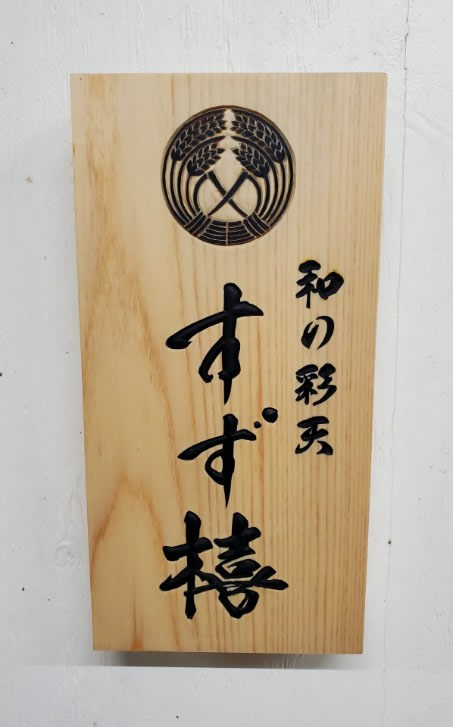 和の彩天
すず橲